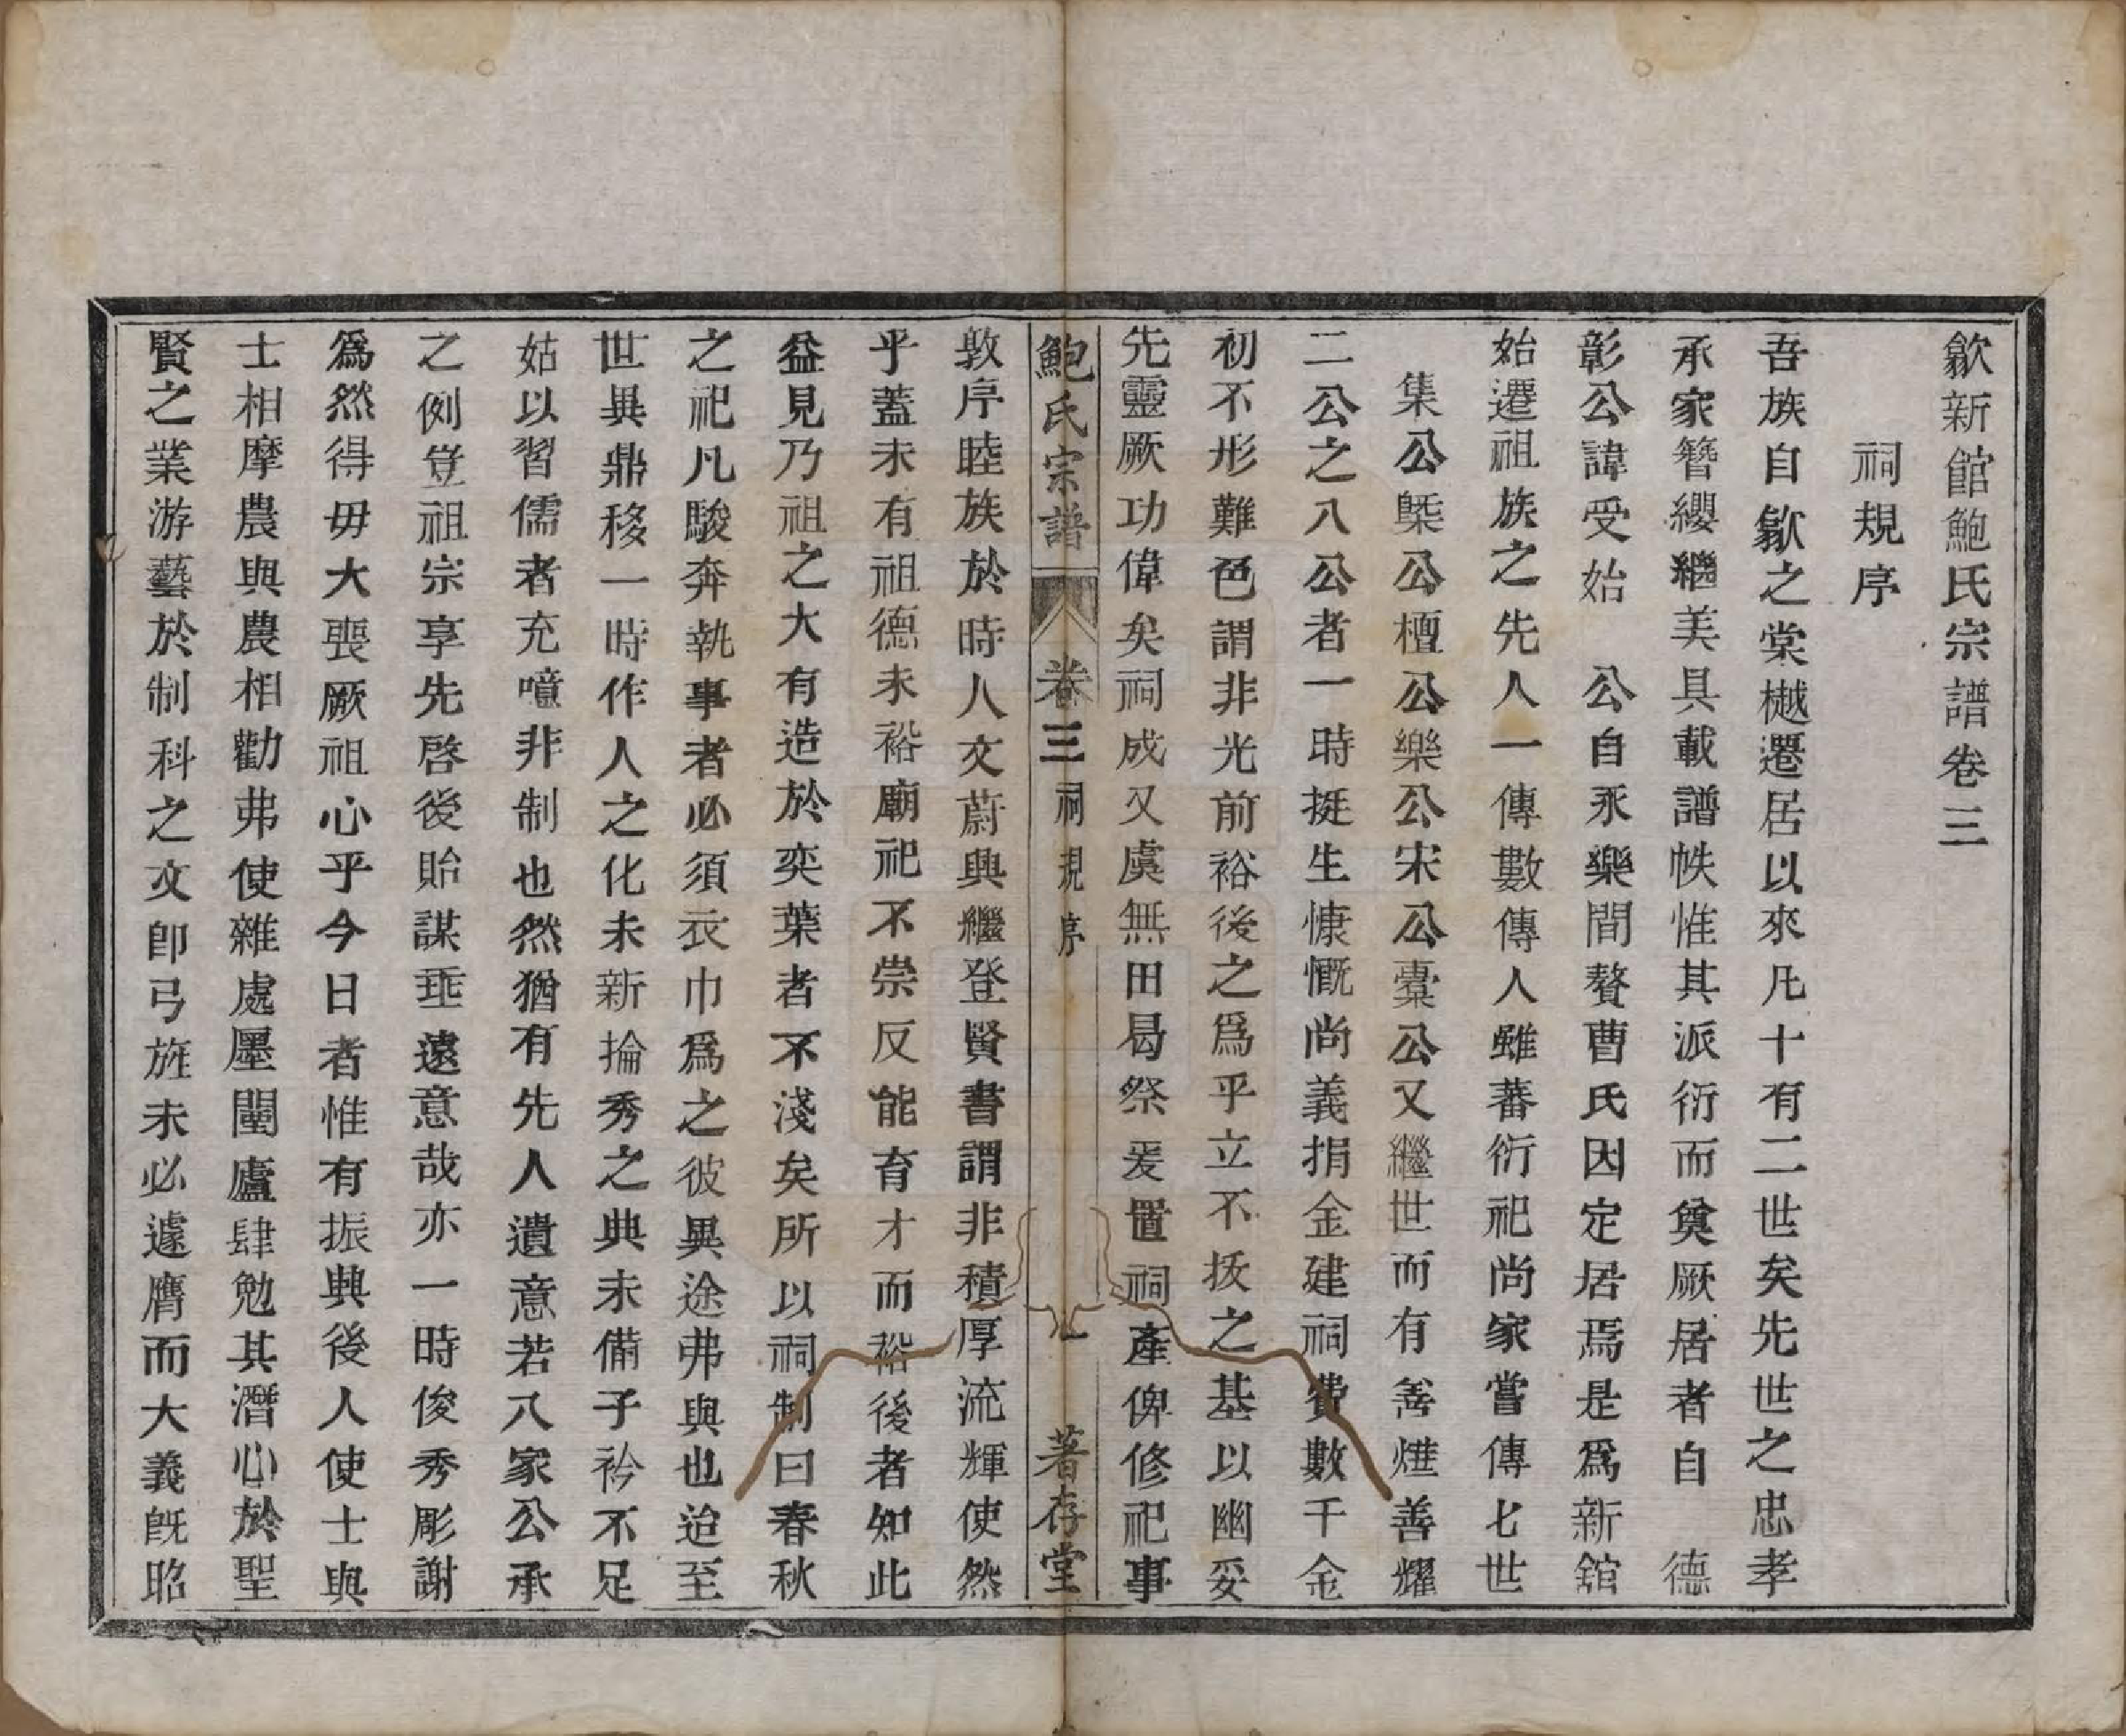 歙新館鮑氏宗譜卷三
祠規序
吾族自歙之棠樾遷居以來凡十有二世矣先世之忠孝
承家簪纓繼美具載譜帙惟其派衍而奠厥居者自　德
彰公諱受始　公自永樂間贅曹氏因定居焉是爲新舘
始遷祖族之先人一傳數傳人雖蕃衍祀尚家嘗傳七世
集公槩公檀公樂公宋公橐公又繼世而有善燁善耀
二公之八公者一時挺生慷慨尚義捐金建祠費數千金
初不形難色謂非光前裕後之爲乎立不拔之基以幽妥
先靈厥功偉矣祠成又虞無田曷祭爰置祠產俾修祀事
鮑氏宗譜　卷三　祠規序　一　著存堂
敦序睦族於時人文蔚興繼登賢書謂非積厚流輝使然
乎蓋未有祖德未裕廟祀不崇反能育才而裕後者知此
益見乃祖之大有造於奕葉者不淺矣所以祠制曰春秋
之祀凡駿奔執事者必須衣巾爲之彼異途弗與也迨至
世異鼎移一時作人之化未新掄秀之典未備子衿不足
姑以習儒者充噫非制也然猶有先人遺意若八家公承
之例豈祖宗享先啓後貽謀垂遠意哉亦一時俊秀彫謝
爲然得毋大喪厥祖心乎今日者惟有振興後人使士與
士相摩農與農相勸弗使雜處廛闤廬肆勉其潛心於聖
賢之業游藝於制科之文卽弓旌未必遽膺而大義旣昭